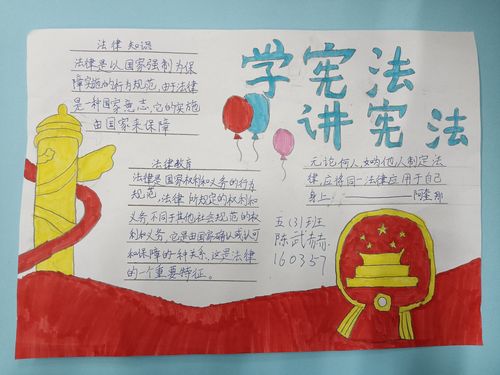 学宪法
讲宪法
法律知识
法律是以国家强制为保
障实施的行为规范,由于法律
是一种国家意志,它的实施
由国家来保障
法律教育
法律是国家权利和义务的行为
规范,法律所规定的权利和
义务不同于其他社会规范的权
利和义务,它是由国家确认或认可
和保障的一种关系,这是法律
的一个重要特征。
无论何人,如为他人制定法
律,应将同一法律应用于自己
身上。——阿奎那
五(3)班
陈武赫
160357